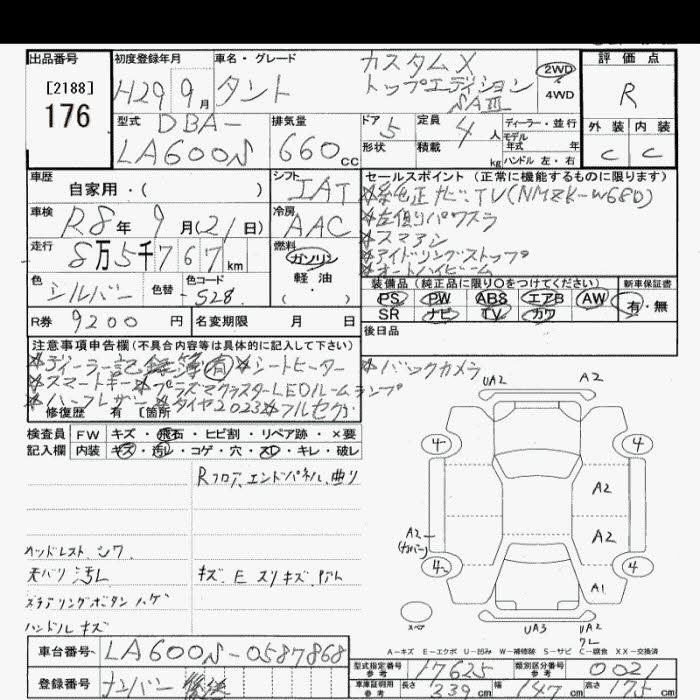 出品番号
[2188]
176
初度登録年月
H29 9月
車名・グレード
タント
カスタムX
トップエディション
SAⅢ
2WD
4WD
評価点
R
外装 内装
C C
型式
DBA-
LA600S
排気量
660cc
ドア 5
形状
定員 4人
積載 kg
ディーラー・並行
モデル年式 年
ハンドル 左・右
車歴
自家用・( )
シフト
IAT
車検
R8年 9月(21日)
冷房
AAC
走行
8万5千767km
燃料
ガソリン
軽油
( )
色
シルバー
色替
色コード
S28
R券 9200円
名変期限 月 日
セールスポイント (正常に機能するものに限ります)
TV(NMZK-W68D)
☆左側パワスラ
☆スマアシ
☆アイドリングストップ
☆オートハイビーム
装備品 (純正品に限り○をつけてください)
新車保証書
PS PW ABS エアB AW
SR ナビ TV カワ
有・無
後日品
注意事項申告欄(不具合内容等は具体的に記入して下さい)
☆ディーラー記録簿有 ☆シートヒーター ☆バックカメラ
☆スマートキー ☆プラズマクラスターLEDルームランプ
☆ハーフレザー ☆タイヤ2023 ☆フルセグ
修復歴 有 [箇所
検査員記入欄
FW キズ・飛石・ヒビ割・リペア跡・×要
内装 キズ・汚れ・コゲ・穴・スレ・キレ・破レ
Rフロア、エンドパネル、曲り
ヘッドレスト、シワ
天バリ 汚レ
キズ、E スリキズ、
ステアリングボタン ハゲ
ハンドル キズ
UA2 A2
4 4
A2
A2
A2
(カバー)
4 4
A1
スペア
UA3 UA2
A-キズ E-エクボ U-凹み W-補修跡 S-サビ C-腐食 XX-交換済
車台番号 LA600S-0587868
登録番号 ナンバー 後
型式指定番号 参考 17625
類別区分番号 参考 0021
車庫証明用 参考 長さ 339cm 幅 147cm 高さ 175cm